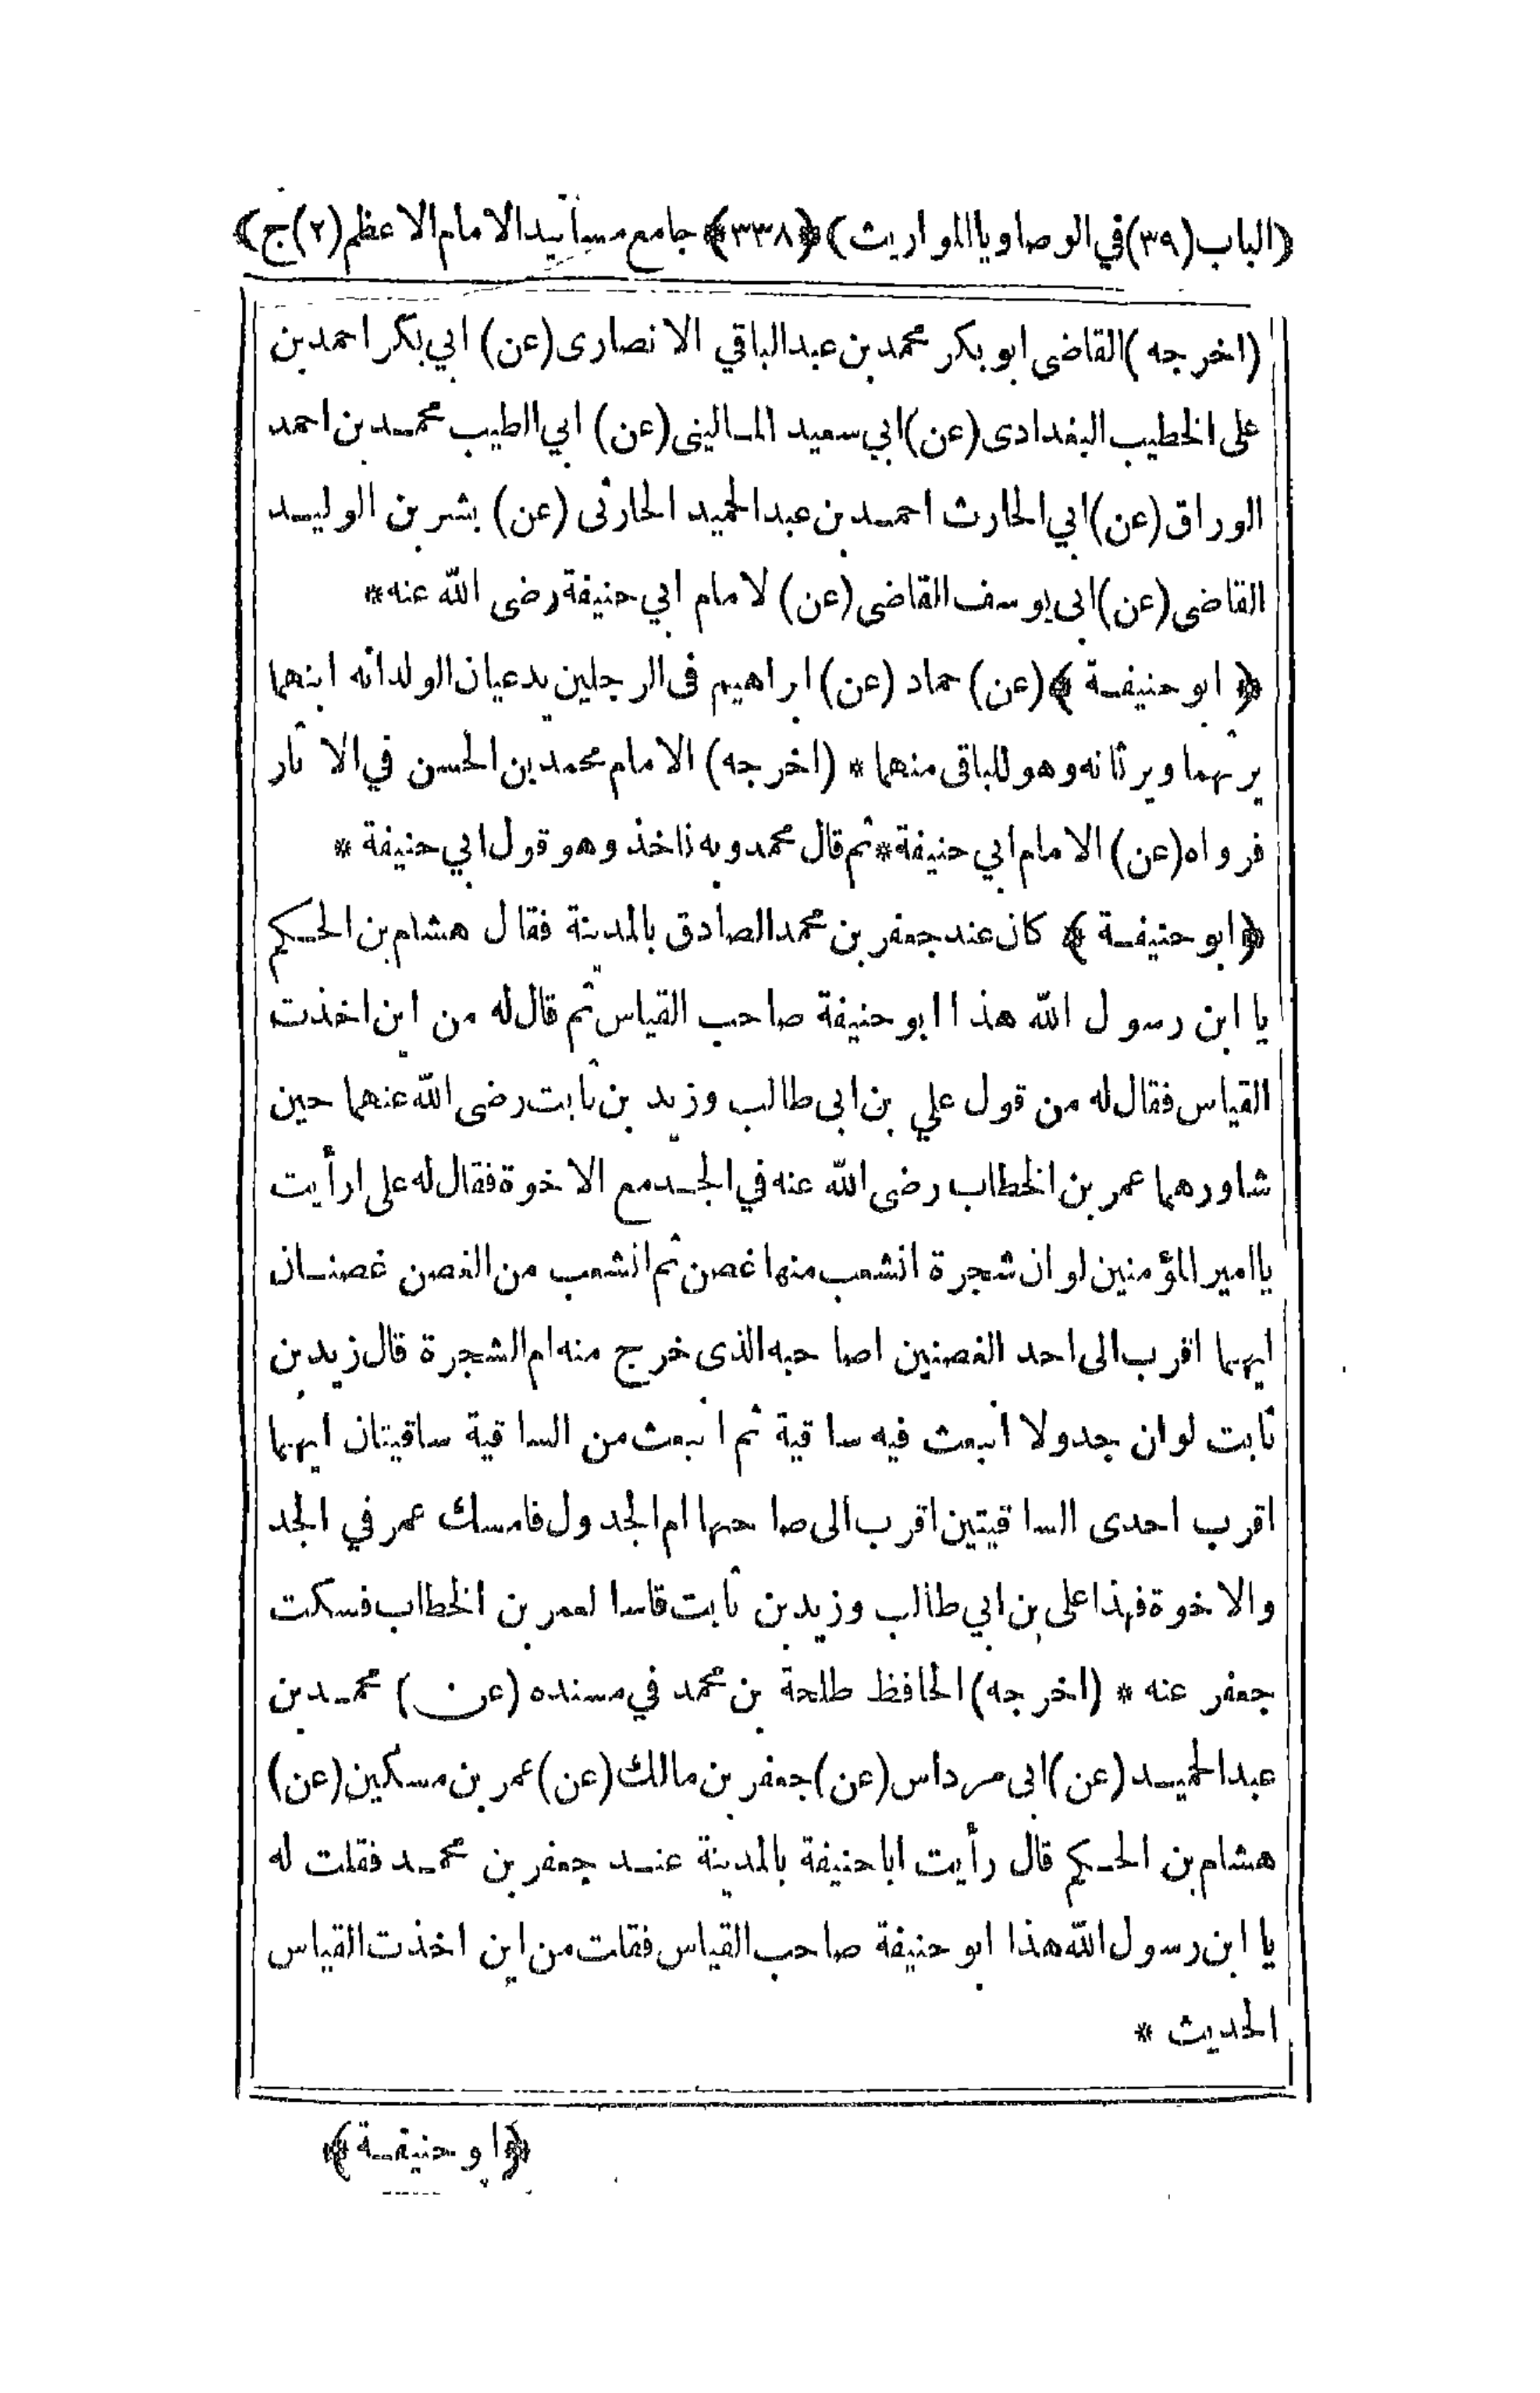 ﴿الباب (٣٩) في الوصاويا المواريث﴾ ﴿٣٣٨﴾ جامع مسانيد الامام الاعظم (٢) ج﴾
(اخرجه) القاضى ابو بكر محمد بن عبد الباقي الانصارى (عن) ابي بكر احمد بن
على الخطيب البغدادى (عن) ابي سعيد المـاليني (عن) ابي الطيب محمـد بن احمد
الوراق (عن) ابي الحارث احمـد بن عبد الحميد الحارثى (عن) بشر بن الوليـد
القاضى (عن) ابى يوسف القاضى (عن) لامام ابي حنيفة رضى الله عنه *
﴿ ابو حنيفـة ﴾ (عن) حماد (عن) ابراهيم فى الرجلين يدعيان الولدانه ابنهما
يرثهما ويرثانه وهو للباقى منهما * (اخرجه) الامام محمد بن الحسن في الآثار
فرواه (عن) الامام ابي حنيفة * ثم قال محمد وبه ناخذ وهو قول ابي حنيفة *
﴿ابو حنيفـة ﴾ كان عند جعفر بن محمد الصادق بالمدينة فقال هشام بن الحـكم
يا ابن رسول الله هذا ابو حنيفة صاحب القياس ثم قال له من اين اخذت
القياس فقال له من قول علي بن ابى طالب وزيد بن ثابت رضى الله عنهما حين
شاورهما عمر بن الخطاب رضى الله عنه في الجـد مع الاخوة فقال له على ارأيت
يا امير المؤمنين لو ان شجرة انشعب منها غصن ثم انشعب من الغصن غصنـان
ايهما اقرب الى احد الغصنين اصا حبه الذى خرج منه ام الشجرة قال زيد بن
ثابت لو ان جدولا انبعث فيه ساقية ثم انبعث من الساقية ساقيتان ايهما
اقرب احدى الساقيتين اقرب الى صاحبها ام الجدول فامسك عمر في الجد
والاخوة فهذا على بن ابي طالب وزيد بن ثابت قاسا لعمر بن الخطاب فسكت
جعفر عنه * (اخرجه) الحافظ طلحة بن محمد في مسنده (عن) محمـد بن
عبد الحميـد (عن) ابى مرداس (عن) جعفر بن مالك (عن) عمر بن مسكين (عن)
هشام بن الحـكم قال رأيت ابا حنيفة بالمدينة عنـد جعفر بن محمـد فقلت له
يا ابن رسول الله هذا ابو حنيفة صاحب القياس فقلت من اين اخذت القياس
الحديث *
﴿ابو حنيفـة﴾